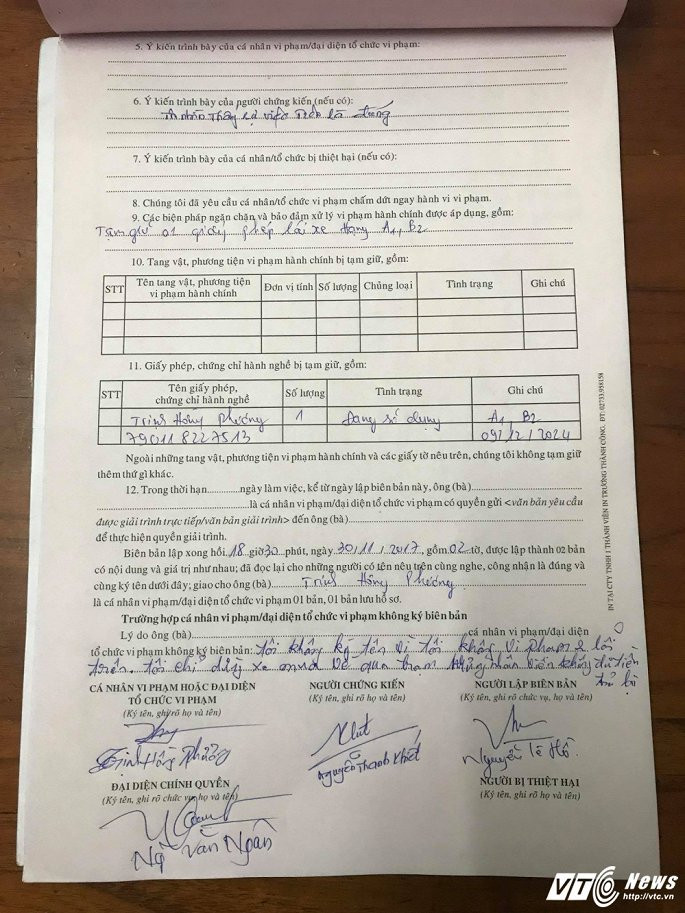 5. Ý kiến trình bày của cá nhân vi phạm/đại diện tổ chức vi phạm:
6. Ý kiến trình bày của người chứng kiến (nếu có):
Thấy sự việc trên là đúng
7. Ý kiến trình bày của cá nhân/tổ chức bị thiệt hại (nếu có):
8. Chúng tôi đã yêu cầu cá nhân/tổ chức vi phạm chấm dứt ngay hành vi vi phạm.
9. Các biện pháp ngăn chặn và bảo đảm xử lý vi phạm hành chính được áp dụng, gồm:
Tạm giữ 01 giấy phép lái xe hạng A1, B2
10. Tang vật, phương tiện vi phạm hành chính bị tạm giữ, gồm:
STT Tên tang vật, phương tiện vi phạm hành chính Đơn vị tính Số lượng Chủng loại Tình trạng Ghi chú
11. Giấy phép, chứng chỉ hành nghề bị tạm giữ, gồm:
STT Tên giấy phép, chứng chỉ hành nghề Số lượng Tình trạng Ghi chú
Trịnh Hồng Phương 1 Đang sử dụng A1, B2
790118227513 09/12/2024
Ngoài những tang vật, phương tiện vi phạm hành chính và các giấy tờ nêu trên, chúng tôi không tạm giữ
thêm thứ gì khác.
12. Trong thời hạn.............ngày làm việc, kể từ ngày lập biên bản này, ông (bà)
là cá nhân vi phạm/đại diện tổ chức vi phạm có quyền gửi <văn bản yêu cầu
được giải trình trực tiếp/văn bản giải trình> đến ông (bà)
để thực hiện quyền giải trình.
Biên bản lập xong hồi 18 giờ 30 phút, ngày 30/11/2017, gồm 02 tờ, được lập thành 02 bản
có nội dung và giá trị như nhau; đã đọc lại cho những người có tên nêu trên cùng nghe, công nhận là đúng và
cùng ký tên dưới đây; giao cho ông (bà) Trịnh Hồng Phương
là cá nhân vi phạm/đại diện tổ chức vi phạm 01 bản, 01 bản lưu hồ sơ.
Trường hợp cá nhân vi phạm/đại diện tổ chức vi phạm không ký biên bản
Lý do ông (bà) cá nhân vi phạm/đại diện
tổ chức vi phạm không ký biên bản: tôi không ký tên vì tôi không vi phạm 2 lỗi
trên. tôi chỉ dừng xe mua vé qua trạm nhưng nhân viên không đủ tiền
trả lại
CÁ NHÂN VI PHẠM HOẶC ĐẠI DIỆN NGƯỜI CHỨNG KIẾN NGƯỜI LẬP BIÊN BẢN
TỔ CHỨC VI PHẠM (Ký tên, ghi rõ họ và tên) (Ký tên, ghi rõ chức vụ, họ và tên)
(Ký tên, ghi rõ họ và tên)
Trịnh Hồng Phương Nguyễn Thanh Khiết Nguyễn Lê Hồ
ĐẠI DIỆN CHÍNH QUYỀN NGƯỜI BỊ THIỆT HẠI
(Ký tên, ghi rõ chức vụ, họ và tên) (Ký tên, ghi rõ họ và tên)
Ngô Văn Ngân
IN TẠI CTY TNHH 1 THÀNH VIÊN IN TRƯỜNG THÀNH CÔNG. ĐT: 02733.958158
VTC News
http://vtc.vn